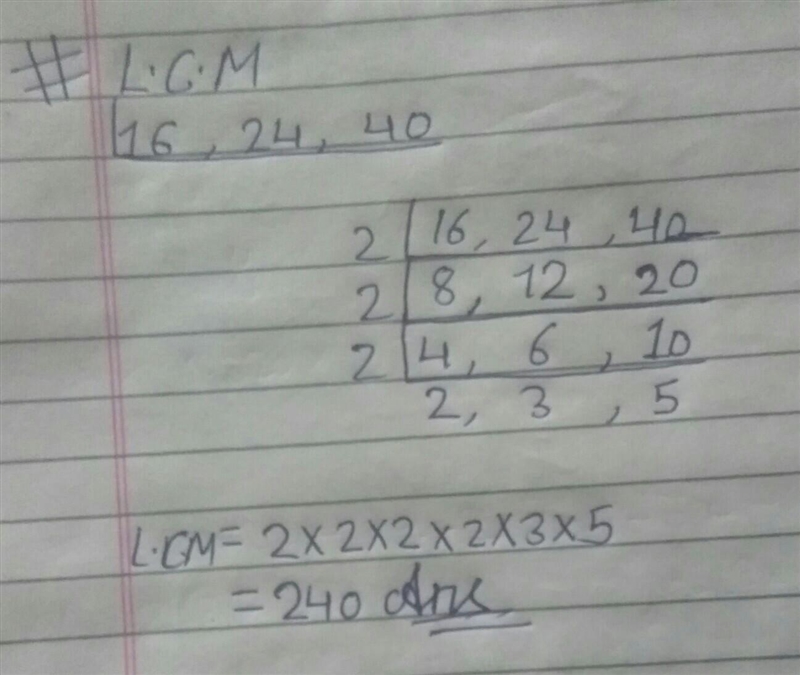 # L.C.M
16, 24, 40
2 | 16, 24, 40
2 | 8, 12, 20
2 | 4, 6, 10
2, 3, 5
L.CM = 2×2×2×2×3×5
= 240 Ans